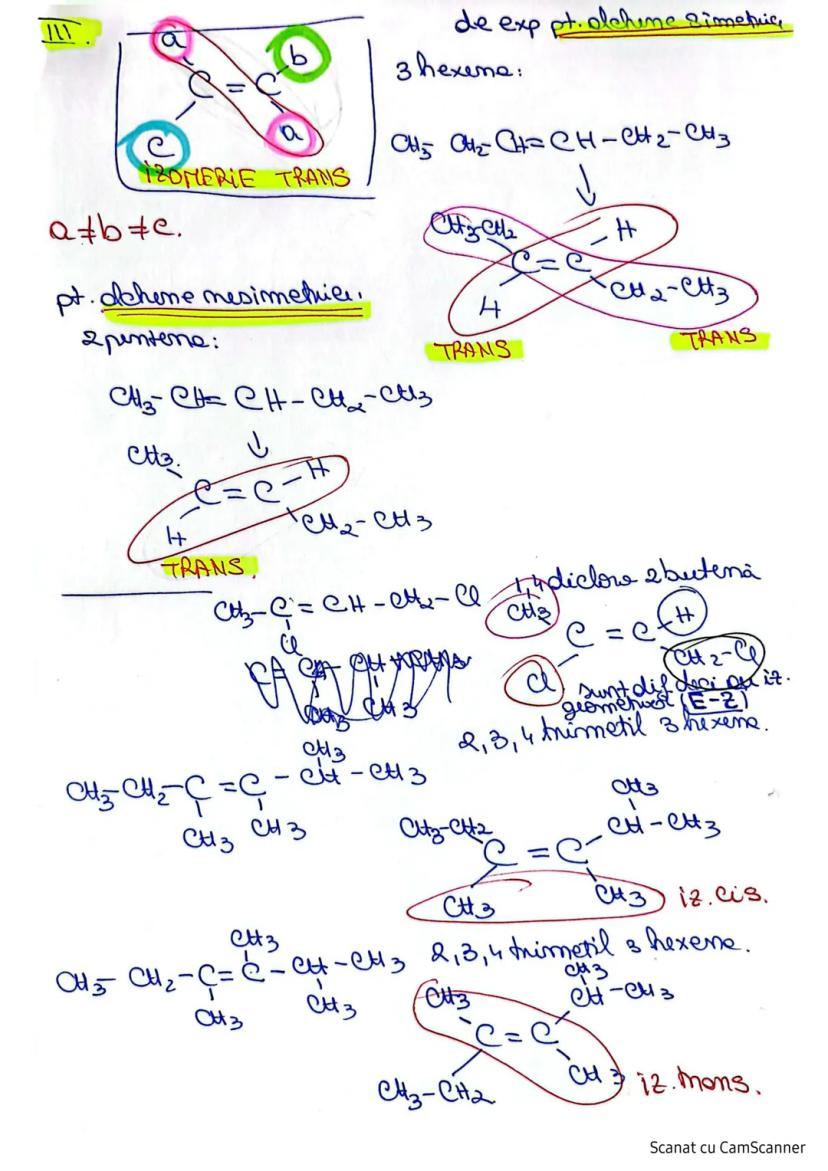 III.
a
b
C = C
c
a
IZOMERIE TRANS
a ≠ b ≠ c.
de exp pt. alchene simetrice
3 hexena:
CH3 CH2 CH = CH - CH2 - CH3
CH3-CH2
H
C = C
H
CH2 - CH3
TRANS
TRANS
pt. alchene nesimetrice.
2 pentena:
CH3 - CH = CH - CH2 - CH3
CH3
H
C = C
H
CH2 - CH3
TRANS.
CH3 - C = CH - CH2 - Cl
Cl
1,4 dicloro 2 butenă
CH3
H
C = C
Cl
CH2 - Cl
sunt dif deci au iz.
geometrică (E-Z)
2,3,4 trimetil 3 hexena.
CH3
CH3-CH2-C = C - CH - CH3
CH3
CH3
CH3
CH3-CH2
CH - CH3
C = C
CH3
CH3
iz. cis.
CH3
CH3 - CH2 - C = C - CH - CH3
CH3
CH3
2,3,4 trimetil 3 hexena.
CH3
CH3
CH - CH3
C = C
CH3 - CH2
CH3
iz. trans.
Scanat cu CamScanner